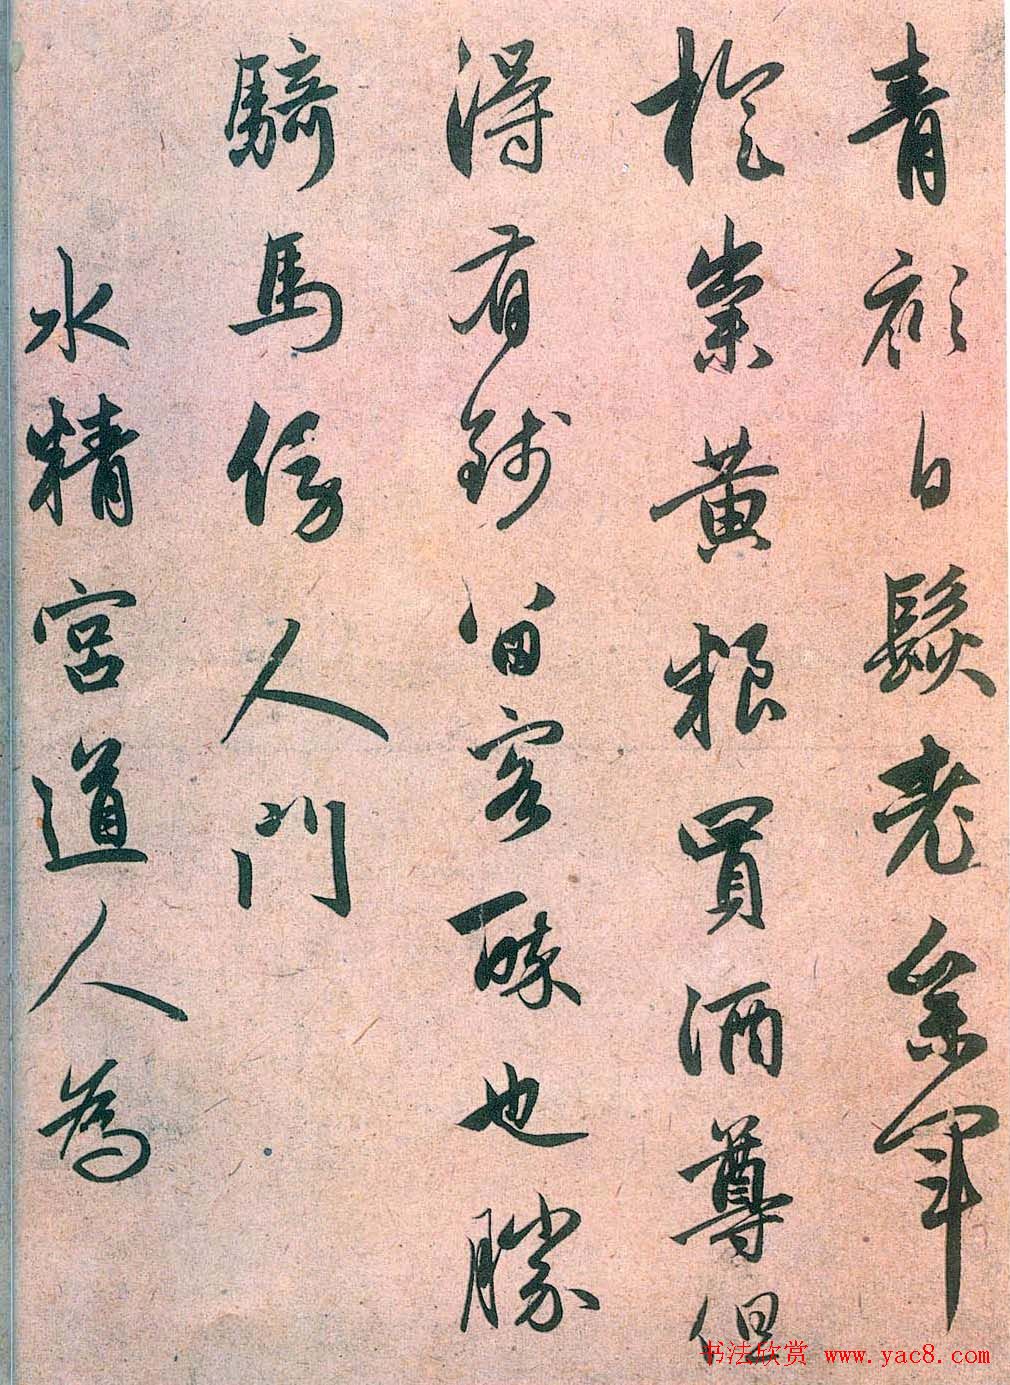 青顏白髮老叅軍
旋粜黄粮買酒尊但
得有錢留客醉也勝
騎馬傍人門
水精宮道人為
书法欣赏 www.yac8.com